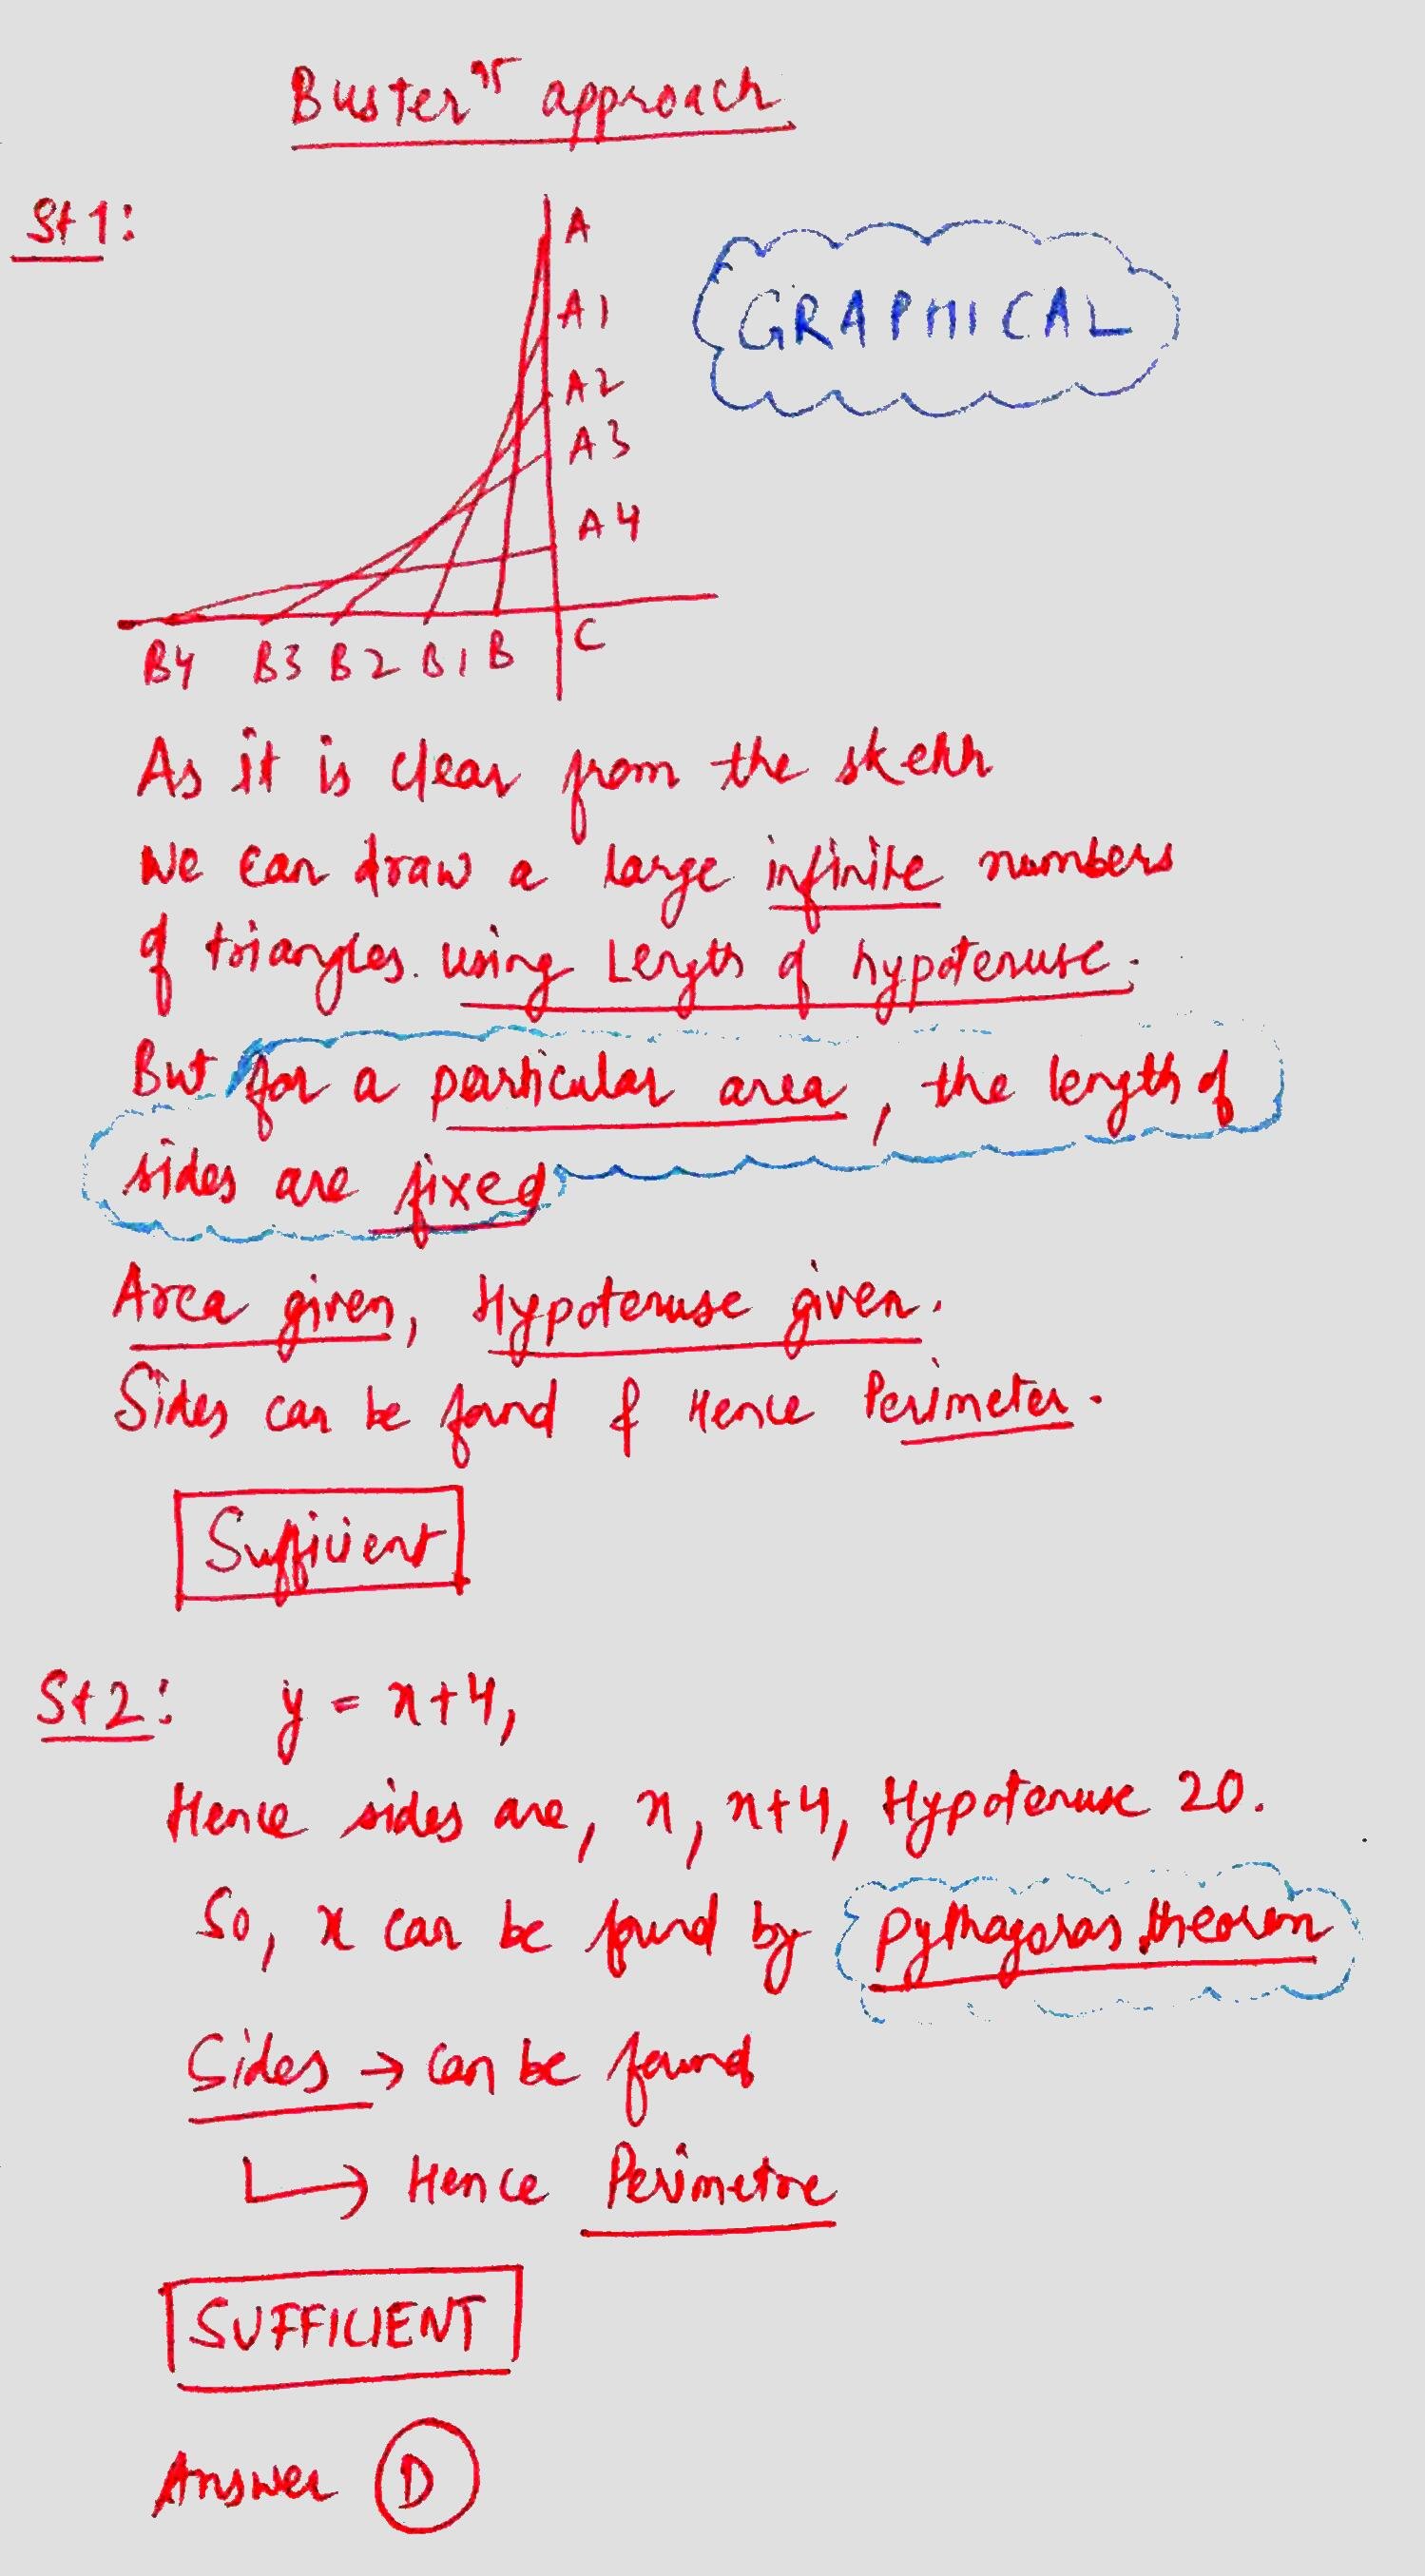 Buster's approach
St 1:
A
A1
GRAPHICAL
A2
A3
A4
C
B4 B3 B2 B1 B
As it is clear from the sketch
We can draw a large infinite numbers
of triangles. using Length of hypotenuse.
But for a particular area, the length of
sides are fixed
Area given, Hypotenuse given.
Sides can be found & Hence Perimeter.
Sufficient
St2: y = x+4,
Hence sides are, x, x+4, Hypotenuse 20.
So, x can be found by pythagoras theorem
Sides → can be found
↳ Hence Perimetre
SUFFICIENT
Answer D